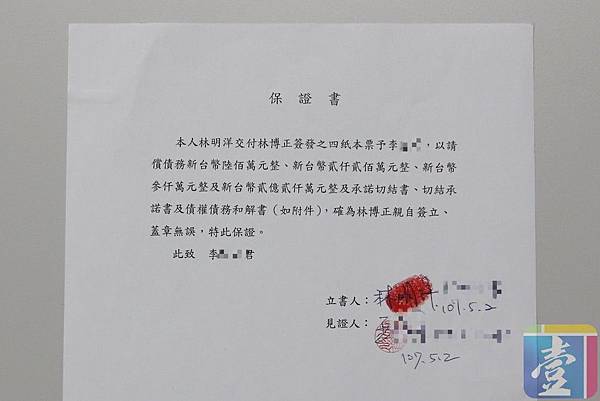 保證書
本人林明洋交付林博正簽發之四紙本票予李，以請
償債務新台幣陸佰萬元整、新台幣貳仟貳佰萬元整、新台幣
參仟萬元整及新台幣貳億貳仟萬元整及承諾切結書、切結承
諾書及債權債務和解書（如附件），確為林博正親自簽立、
蓋章無誤，特此保證。
此致 李君
立書人：林明洋
107.5.2
見證人：
107.5.2
壹